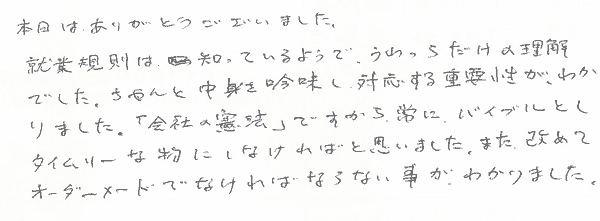 本日は、ありがとうございました。
就業規則は、知っているようで、うわっらだけの理解
でした。ちゃんと中身を吟味し、対応する重要性が、わか
りました。「会社の憲法」ですから、常に、バイブルとし
タイムリーな物にしなければと思いました。また、改めて
オーダーメードでなければならない事が、わかりました。